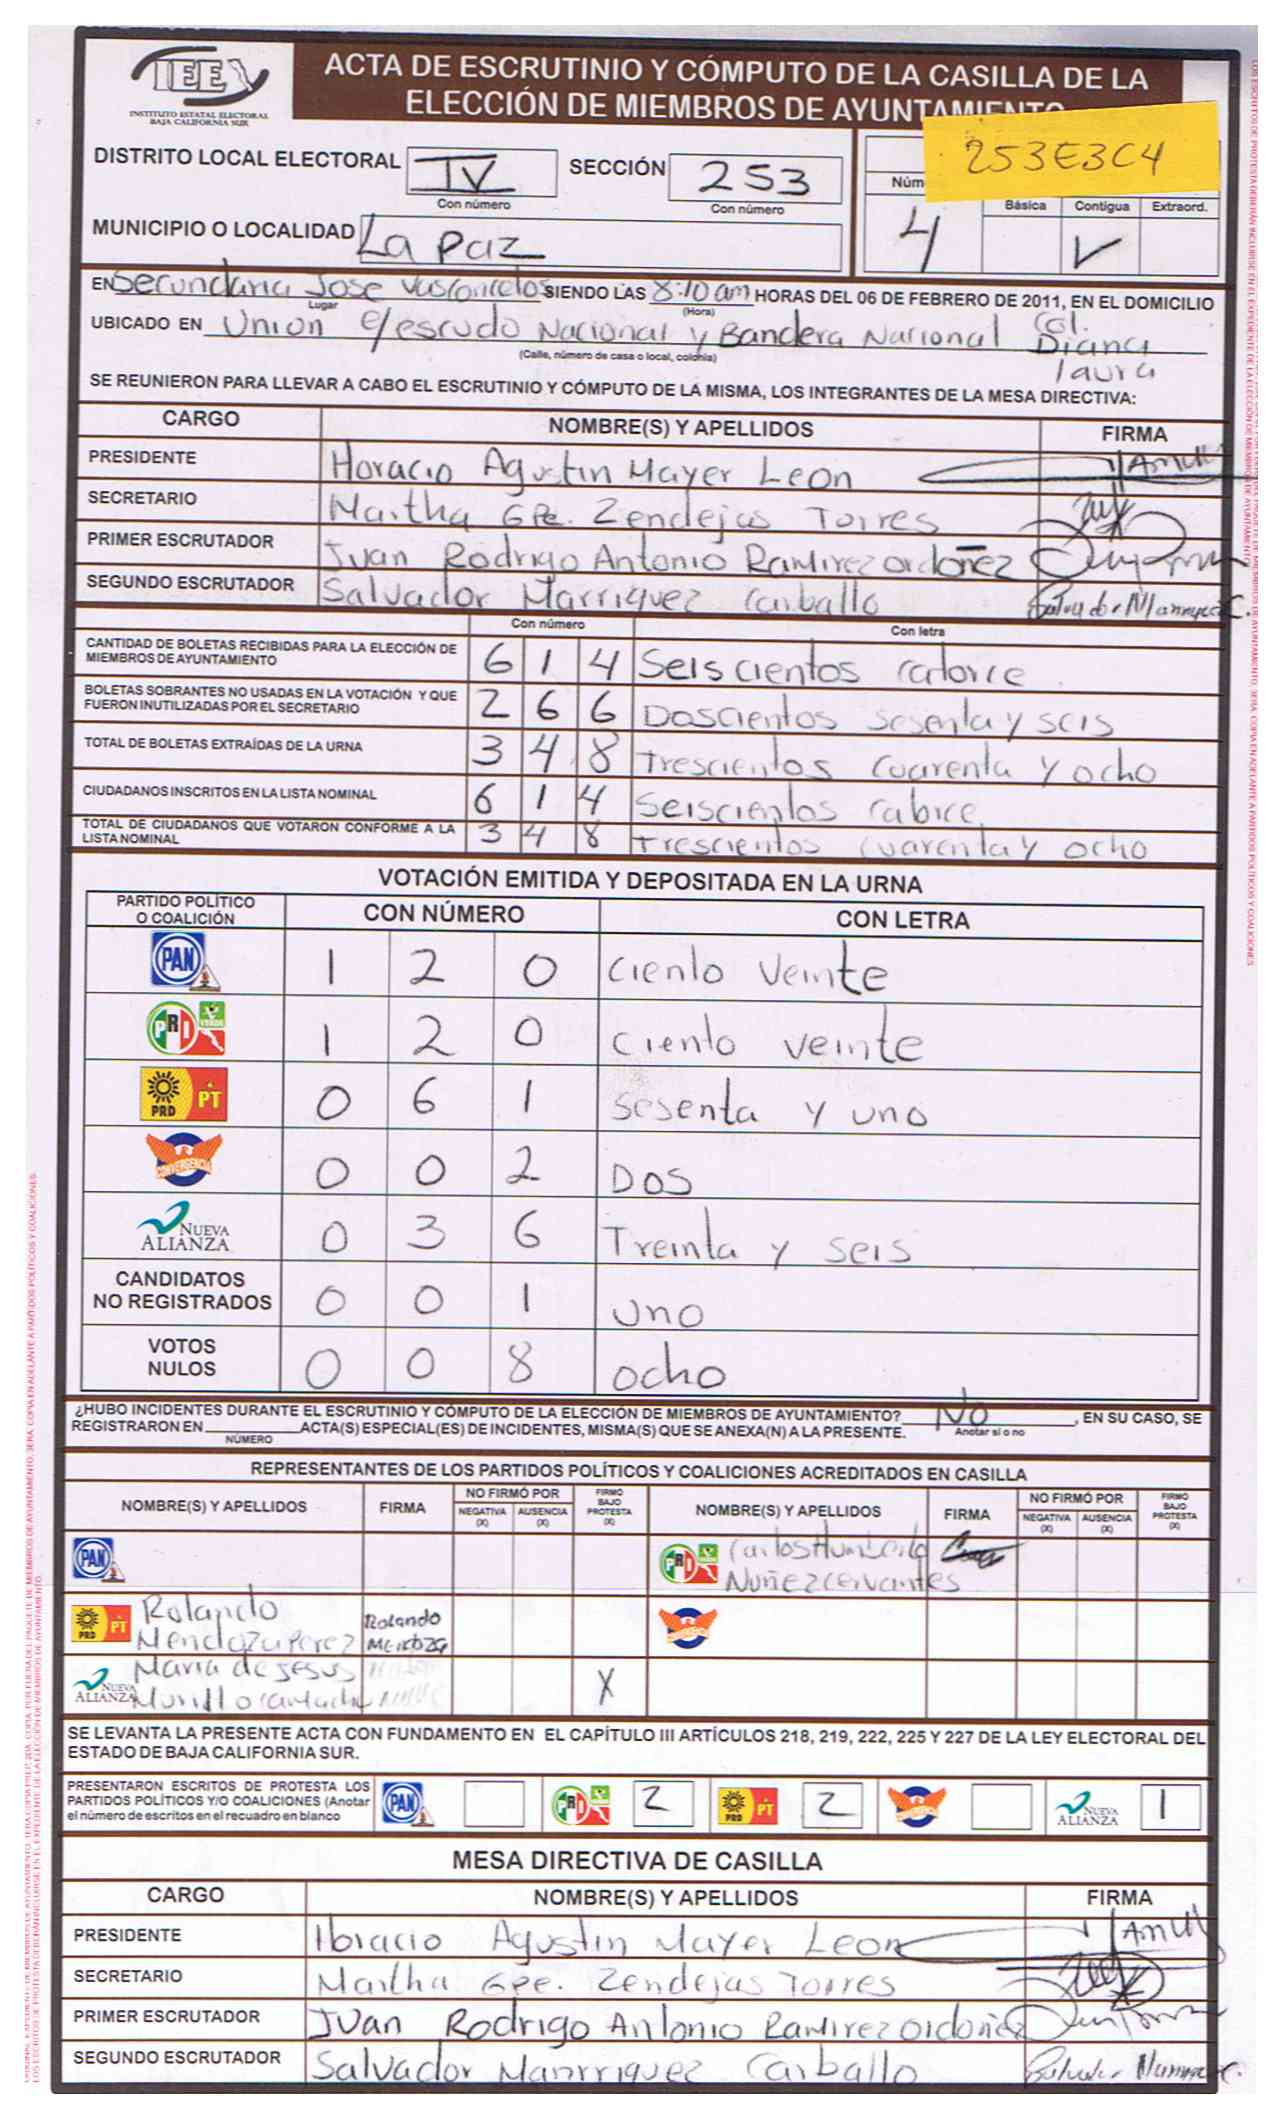 IEE
INSTITUTO ESTATAL ELECTORAL
BAJA CALIFORNIA SUR
ACTA DE ESCRUTINIO Y CÓMPUTO DE LA CASILLA DE LA
ELECCIÓN DE MIEMBROS DE AYUNTAMIENTO
253E3C4
DISTRITO LOCAL ELECTORAL IV SECCIÓN 253
Con número Con número
Núm 4 Básica Contigua Extraord.
MUNICIPIO O LOCALIDAD La Paz
EN Secundaria Jose Vasconcelos SIENDO LAS 8:10 am HORAS DEL 06 DE FEBRERO DE 2011, EN EL DOMICILIO
Lugar (Hora)
UBICADO EN Union e/escudo Nacional y Bandera Nacional Col. Diana laura
(Calle, número de casa o local, colonia)
SE REUNIERON PARA LLEVAR A CABO EL ESCRUTINIO Y CÓMPUTO DE LA MISMA, LOS INTEGRANTES DE LA MESA DIRECTIVA:
CARGO NOMBRE(S) Y APELLIDOS FIRMA
PRESIDENTE Horacio Agustin Mayer Leon
SECRETARIO Martha Gpe. Zendejas Torres
PRIMER ESCRUTADOR Juan Rodrigo Antonio Ramirez Ordoñez
SEGUNDO ESCRUTADOR Salvador Marriquez Carballo
Con número Con letra
CANTIDAD DE BOLETAS RECIBIDAS PARA LA ELECCIÓN DE
MIEMBROS DE AYUNTAMIENTO 6 1 4 Seiscientos catorce
BOLETAS SOBRANTES NO USADAS EN LA VOTACIÓN Y QUE
FUERON INUTILIZADAS POR EL SECRETARIO 2 6 6 Doscientos sesenta y seis
TOTAL DE BOLETAS EXTRAÍDAS DE LA URNA 3 4 8 Trescientos cuarenta y ocho
CIUDADANOS INSCRITOS EN LA LISTA NOMINAL 6 1 4 Seiscientos
TOTAL DE CIUDADANOS QUE VOTARON CONFORME A LA
LISTA NOMINAL 3 4 8 Trescientos cuarenta y ocho
VOTACIÓN EMITIDA Y DEPOSITADA EN LA URNA
PARTIDO POLÍTICO
O COALICIÓN CON NÚMERO CON LETRA
PAN 1 2 0 Ciento veinte
PRI VERDE 1 2 0 Ciento veinte
PRD PT 0 6 1 Sesenta y uno
CONVERGENCIA 0 0 2 DOS
NUEVA ALIANZA 0 3 6 Treinta y seis
CANDIDATOS
NO REGISTRADOS 0 0 1 uno
VOTOS
NULOS 0 0 8 ocho
¿HUBO INCIDENTES DURANTE EL ESCRUTINIO Y CÓMPUTO DE LA ELECCIÓN DE MIEMBROS DE AYUNTAMIENTO? No, EN SU CASO, SE
Anotar sí o no
REGISTRARON EN ACTA(S) ESPECIAL(ES) DE INCIDENTES, MISMA(S) QUE SE ANEXA(N) A LA PRESENTE.
NÚMERO
REPRESENTANTES DE LOS PARTIDOS POLÍTICOS Y COALICIONES ACREDITADOS EN CASILLA
NOMBRE(S) Y APELLIDOS FIRMA NO FIRMÓ POR NEGATIVA (X) AUSENCIA (X) FIRMÓ BAJO PROTESTA (X) NOMBRE(S) Y APELLIDOS FIRMA NO FIRMÓ POR NEGATIVA (X) AUSENCIA (X) FIRMÓ BAJO PROTESTA (X)
PAN
PRI Carlos Humberto Nuñez Cervantes
PRD PT Rolando Mendoza Perez Rolando Mendoza
CONVERGENCIA
NUEVA ALIANZA Maria de Jesus Murillo X
SE LEVANTA LA PRESENTE ACTA CON FUNDAMENTO EN EL CAPÍTULO III ARTÍCULOS 218, 219, 222, 225 Y 227 DE LA LEY ELECTORAL DEL
ESTADO DE BAJA CALIFORNIA SUR.
PRESENTARON ESCRITOS DE PROTESTA LOS
PARTIDOS POLÍTICOS Y/O COALICIONES (Anotar
el número de escritos en el recuadro en blanco
PAN PRI 2 PRD PT 2 CONVERGENCIA NUEVA ALIANZA 1
MESA DIRECTIVA DE CASILLA
CARGO NOMBRE(S) Y APELLIDOS FIRMA
PRESIDENTE Horacio Agustin Mayer Leon
SECRETARIO Martha Gpe. Zendejas Torres
PRIMER ESCRUTADOR Juan Rodrigo Antonio Ramirez Ordoñez
SEGUNDO ESCRUTADOR Salvador Manrriquez Carballo